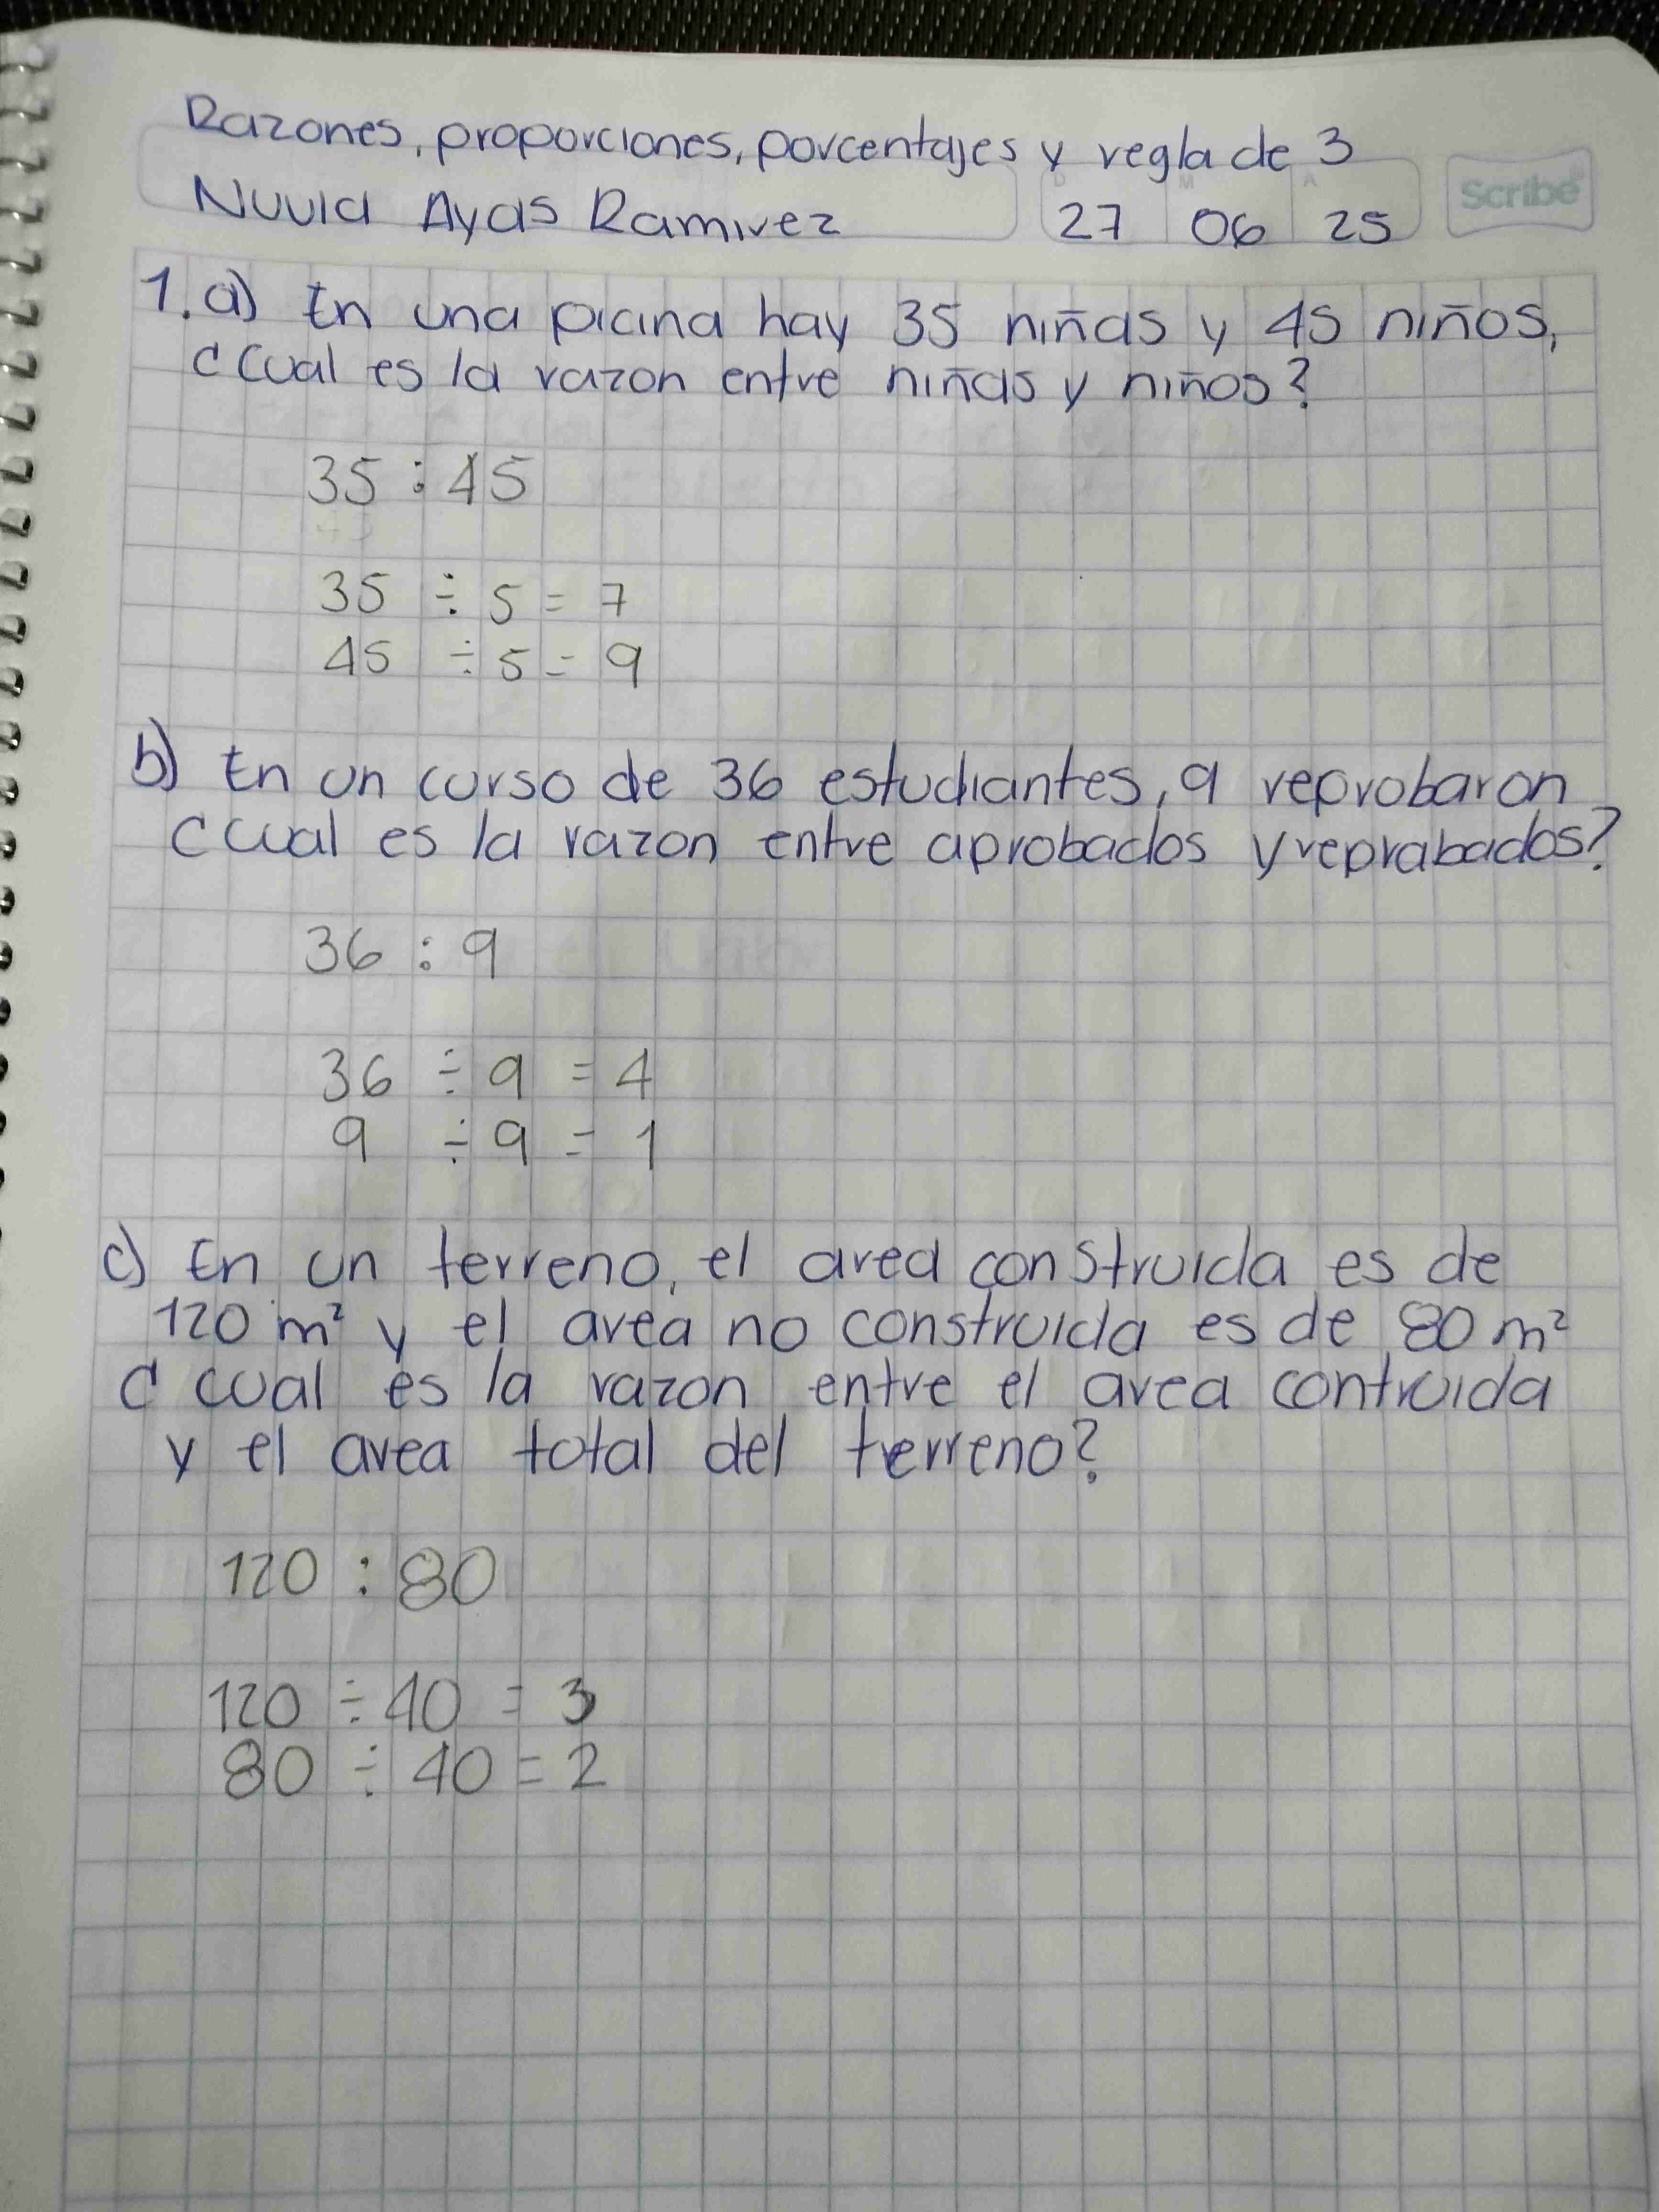 Razones, proporciones, porcentajes y regla de 3
Ayas Ramirez
D M A
27 06 25
Scribe
1. a) En una picina hay 35 niñas y 45 niños,
¿Cual es la razon entre niñas y niños?
35 : 45
35 ÷ 5 = 7
45 ÷ 5 = 9
b) En un curso de 36 estudiantes, 9 reprobaron
¿cual es la razon entre aprobados y reprabados?
36 : 9
36 ÷ 9 = 4
9 ÷ 9 = 1
c) En un terreno, el area construida es de
120 m² y el area no construida es de 80 m²
¿cual es la razon entre el area contruida
y el area total del terreno?
120 : 80
120 ÷ 40 = 3
80 ÷ 40 = 2